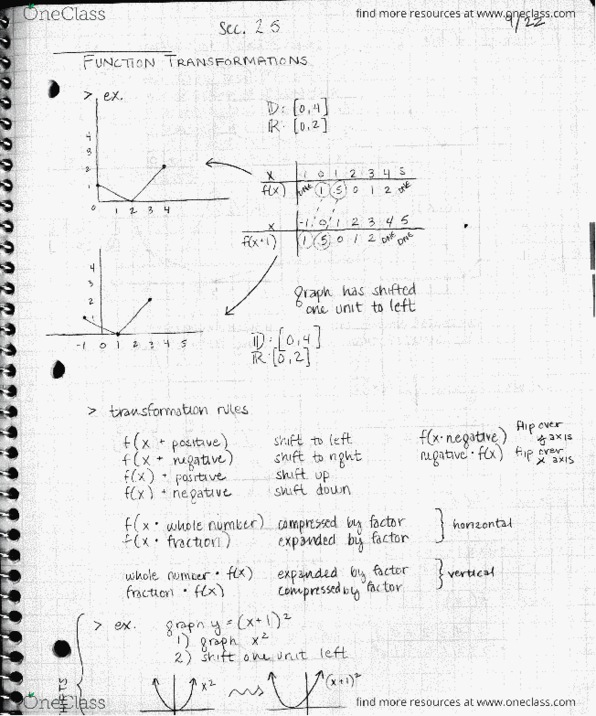 OneClass
find more resources at www.oneclass.com
Sec. 2.5
9/22
FUNCTION TRANSFORMATIONS
> ex.
D: [0,4]
R: [0,2]
4
3
2
1
0 1 2 3 4
x -1 0 1 2 3 4 5
f(x) DNE 1 .5 0 1 2 DNE
x -1 0 1 2 3 4 5
f(x+1) 1 .5 0 1 2 DNE DNE
4
3
2
1
-1 0 1 2 3 4 5
graph has shifted
one unit to left
D: [0,4]
R: [0,2]
> transformation rules
f(x + positive) shift to left
f(x + negative) shift to right
f(x) + positive shift up
f(x) + negative shift down
f(x·negative) flip over y axis
negative·f(x) flip over x axis
f(x · whole number) compressed by factor
f(x · fraction) expanded by factor
horizontal
whole number · f(x) expanded by factor
fraction · f(x) compressed by factor
vertical
> ex. graph y = (x+1)²
1) graph x²
2) shift one unit left
x²
(x+1)²
OneClass
find more resources at www.oneclass.com